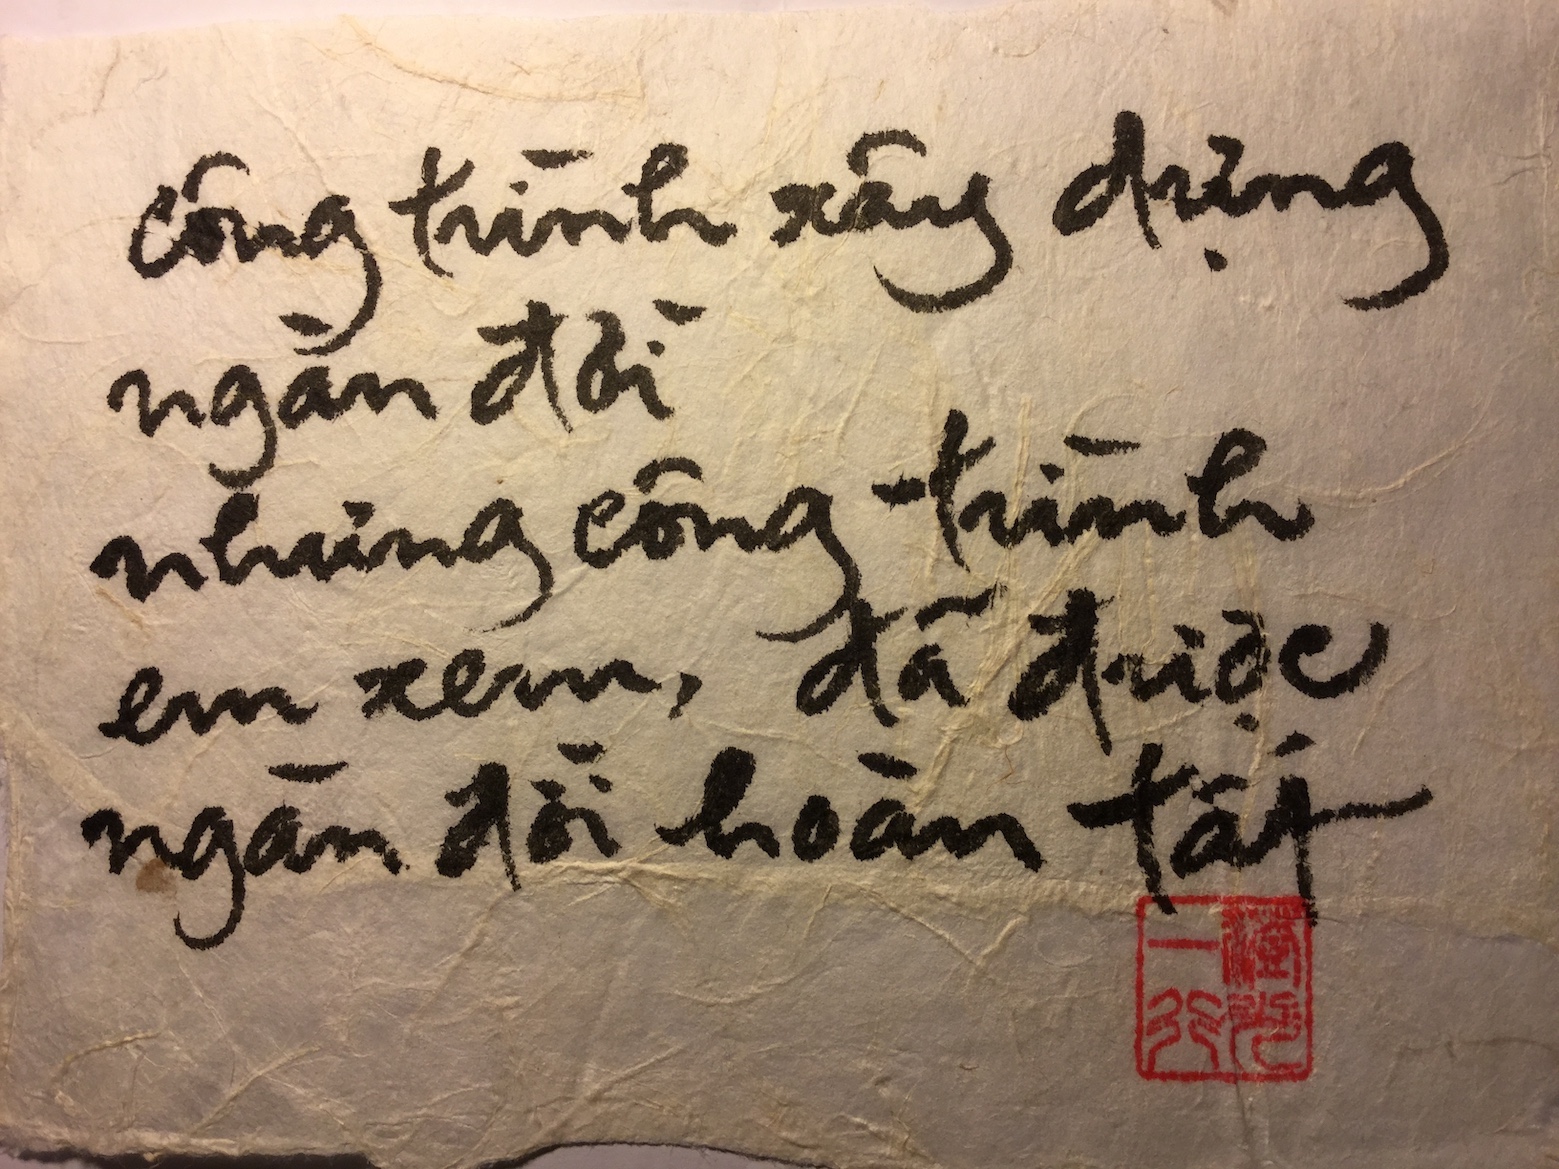 công trình xây dựng
ngàn đời
những công trình
em xem, đã được
ngàn đời hoàn tất
一行